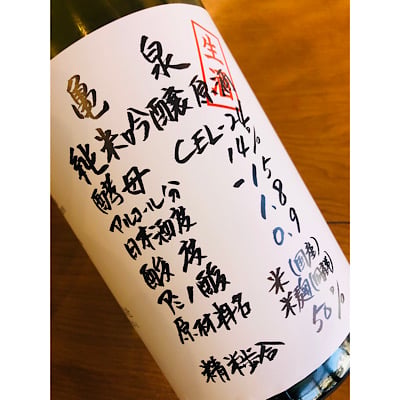 生酒
亀泉
純米吟醸原酒
酵母 CEL-24
アルコール分 14%
日本酒度 -15
酸度 1.8
アミノ酸 0.9
原材料名 米(国産)
米麹(国産米)
精米歩合 50%